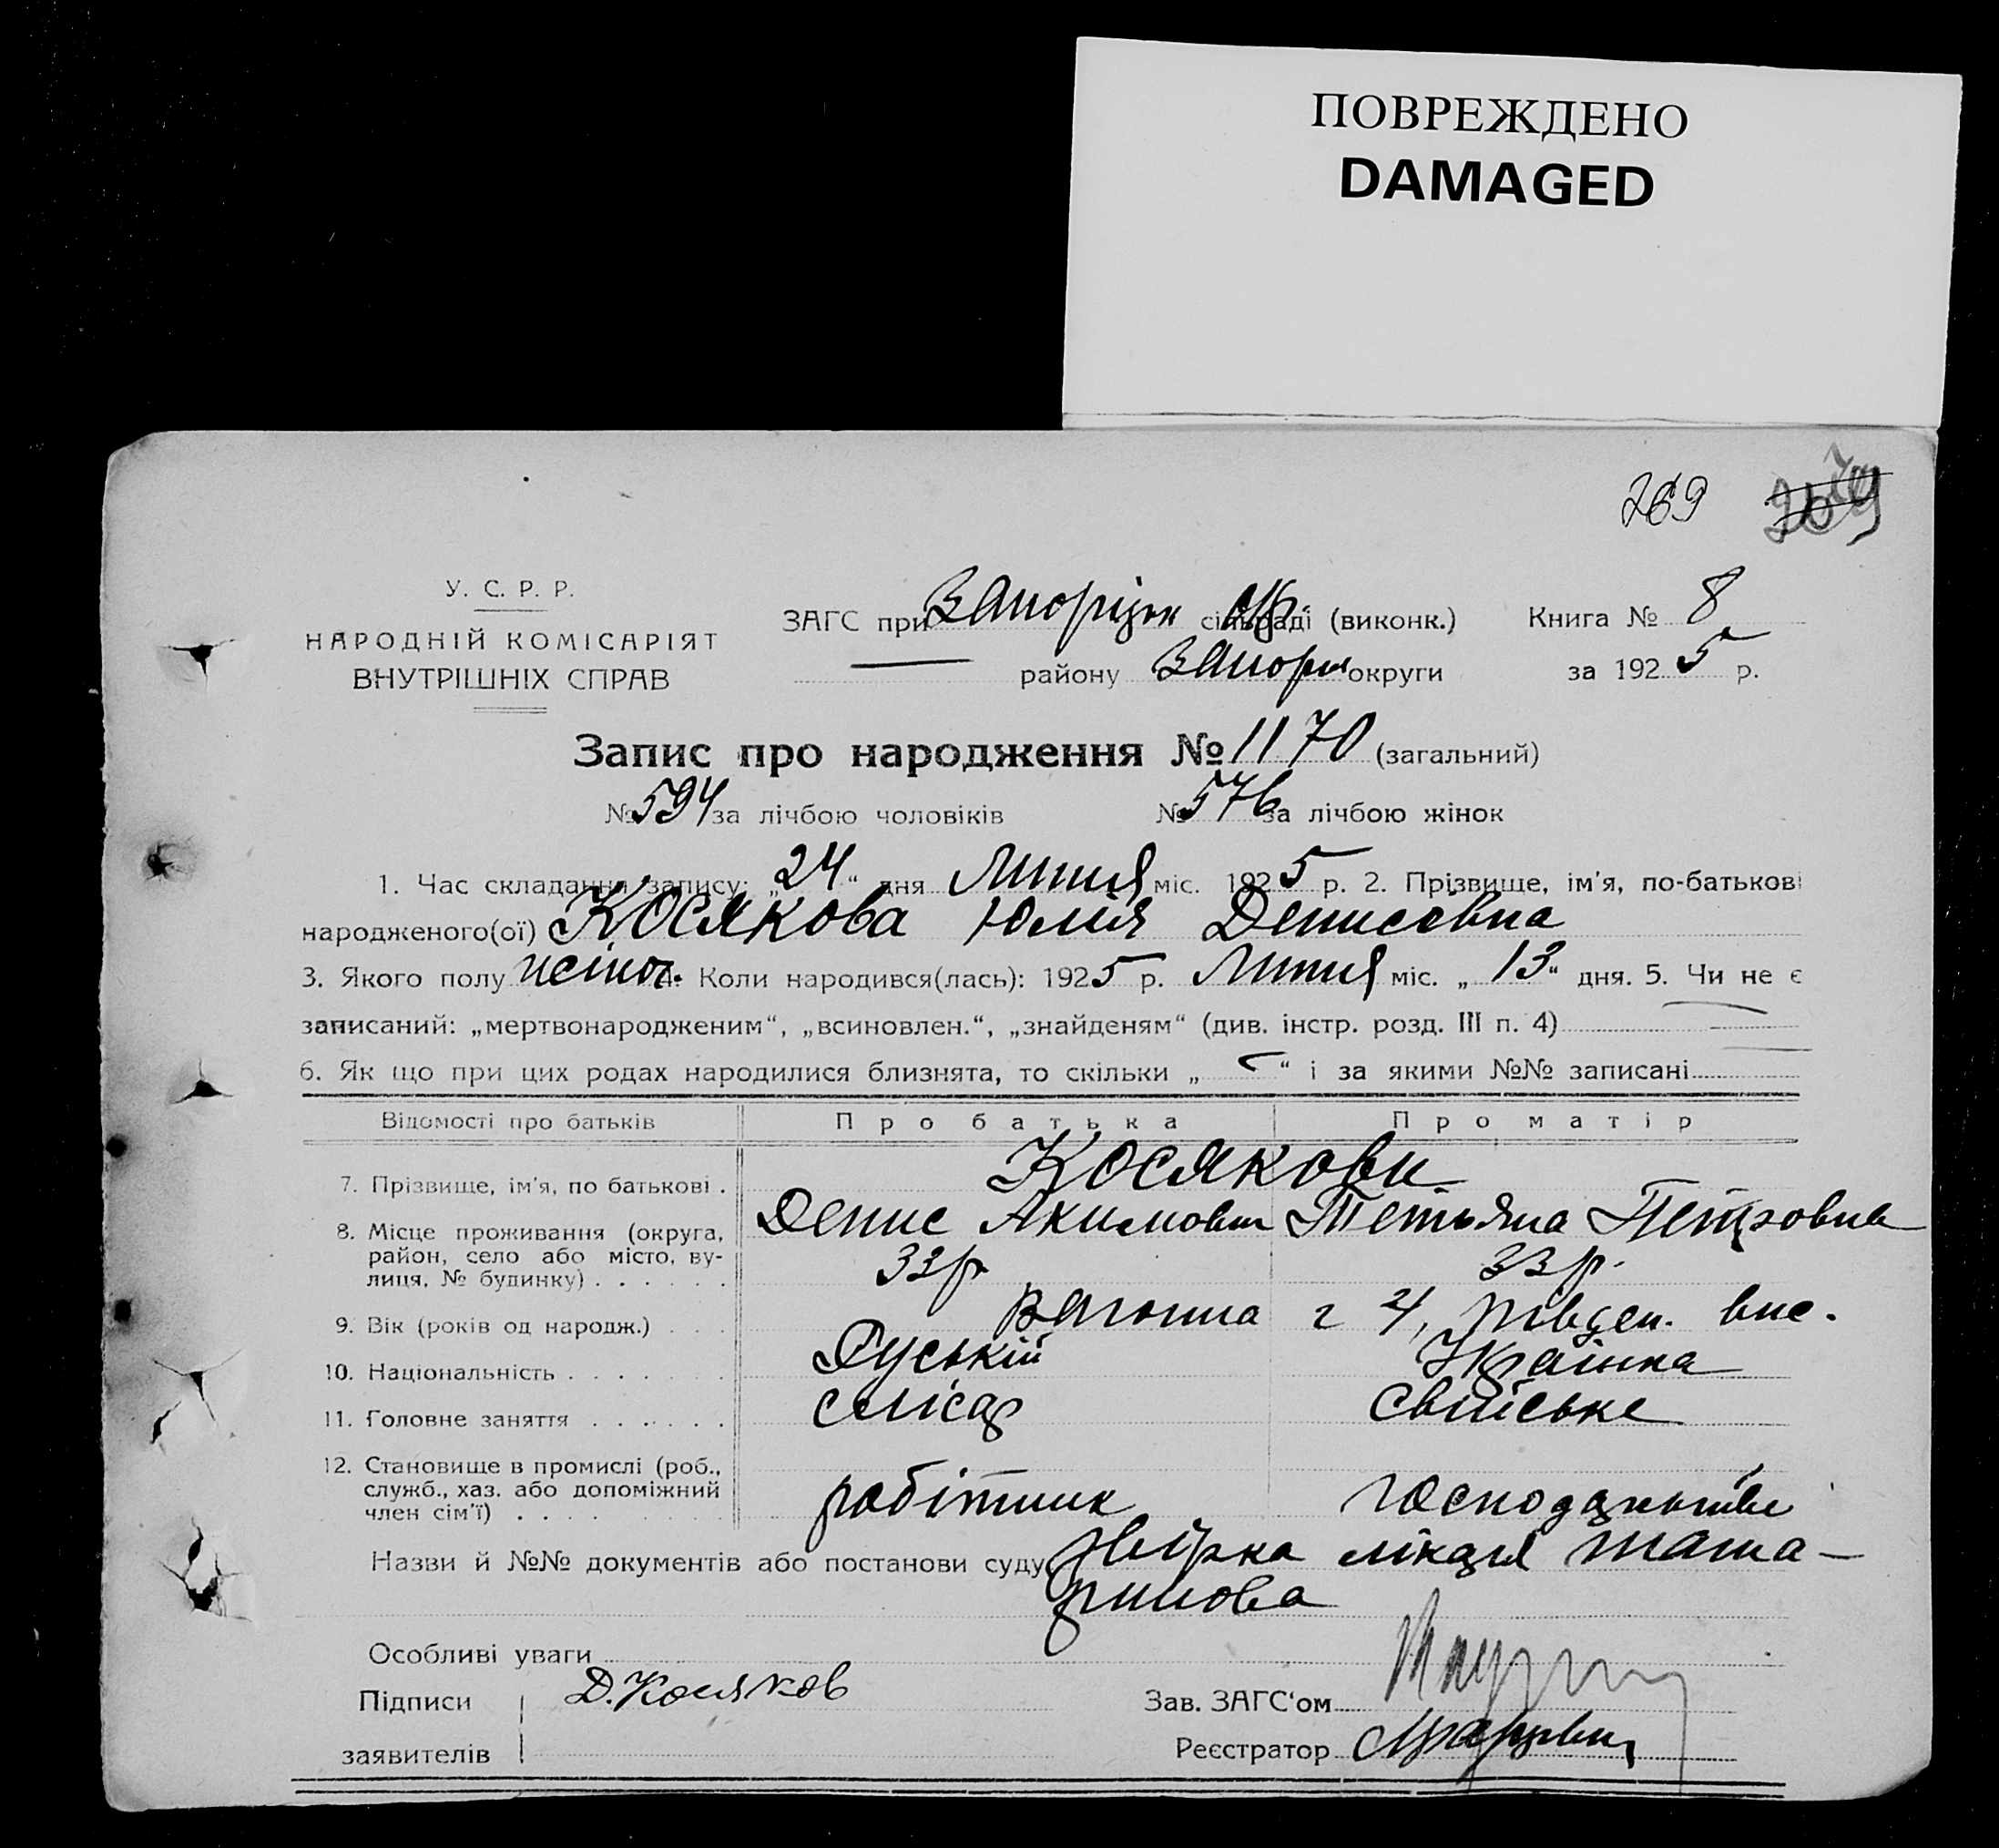 ПОВРЕЖДЕНО
DAMAGED
269
У. С. Р. Р.
НАРОДНІЙ КОМІСАРІЯТ
ВНУТРІШНІХ СПРАВ
ЗАГС при Запорізк сільраді окр. (виконк.) Книга № 8
— району Запоріз округи за 1925 р.
Запис про народження № 1170 (загальний)
№ 594 за лічбою чоловіків № 576 за лічбою жінок
1. Час складання запису: „24“ дня Липня міс. 1925 р. 2. Прізвище, ім'я, по-батькові
народженого(ої) Косякова Юлія Денисовна
3. Якого полу жіноч. 4. Коли народився(лась): 1925 р. Липня міс. „13“ дня. 5. Чи не є
записаний: „мертвонародженим“, „всиновлен.“, „знайденям“ (див. інстр. розд. III п. 4) —
6. Як що при цих родах народилися близнята, то скільки „ “ і за якими №№ записані
Відомості про батьків Про батька Про матір
7. Прізвище, ім'я, по батькові . Косякови
8. Місце проживання (округа, район, село або місто, вулиця, № будинку) . . . . . . Денис Акимович Тетьяна Петровна
33 р. 33 р.
9. Вік (років од народж.) . . . Вагонна 2 4, Півден. вис.
10. Національність . . . . . . . Руський Українка
11. Головне заняття . . . . . . слюсар свійське
12. Становище в промислі (роб., служб., хаз. або допоміжний член сім'ї) . . . . робітник господарьстве
Назви й №№ документів або постанови суду лікаря Тата-
ринова
Особливі уваги
Підписи Д. Косяков Зав. ЗАГС'ом
заявителів Реєстратор